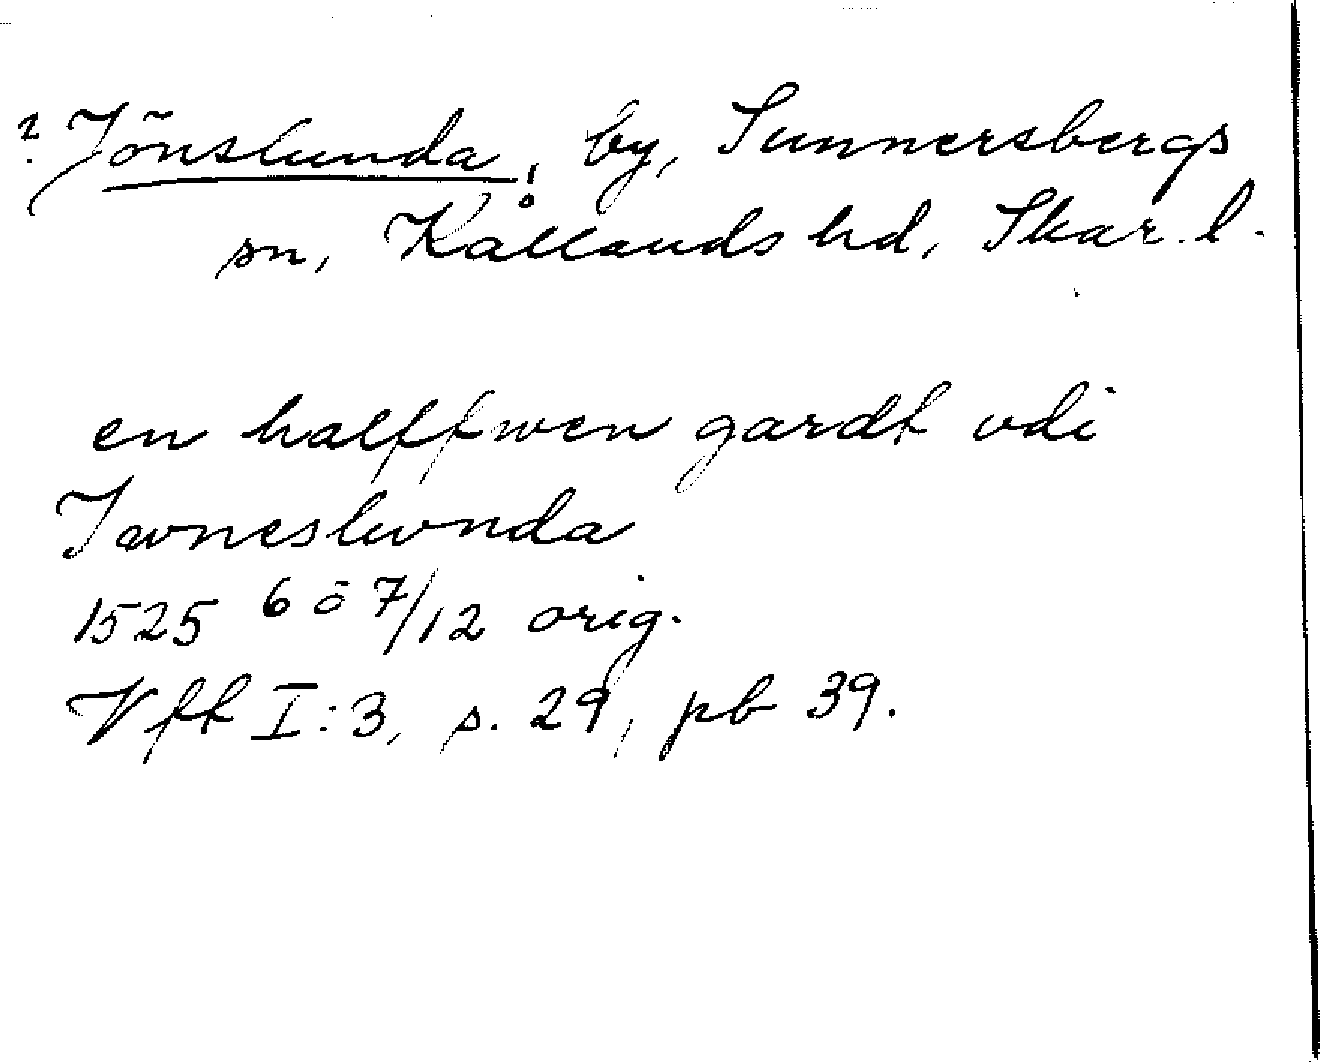 ? Jönslunda, by, Sunnersbergs
sn, Kållands hd, Skar. l.
en halffwen gardt vdi
Jwneslwnda
1525 6 ö 7/12 orig.
Vff I:3, s. 29, pb 39.